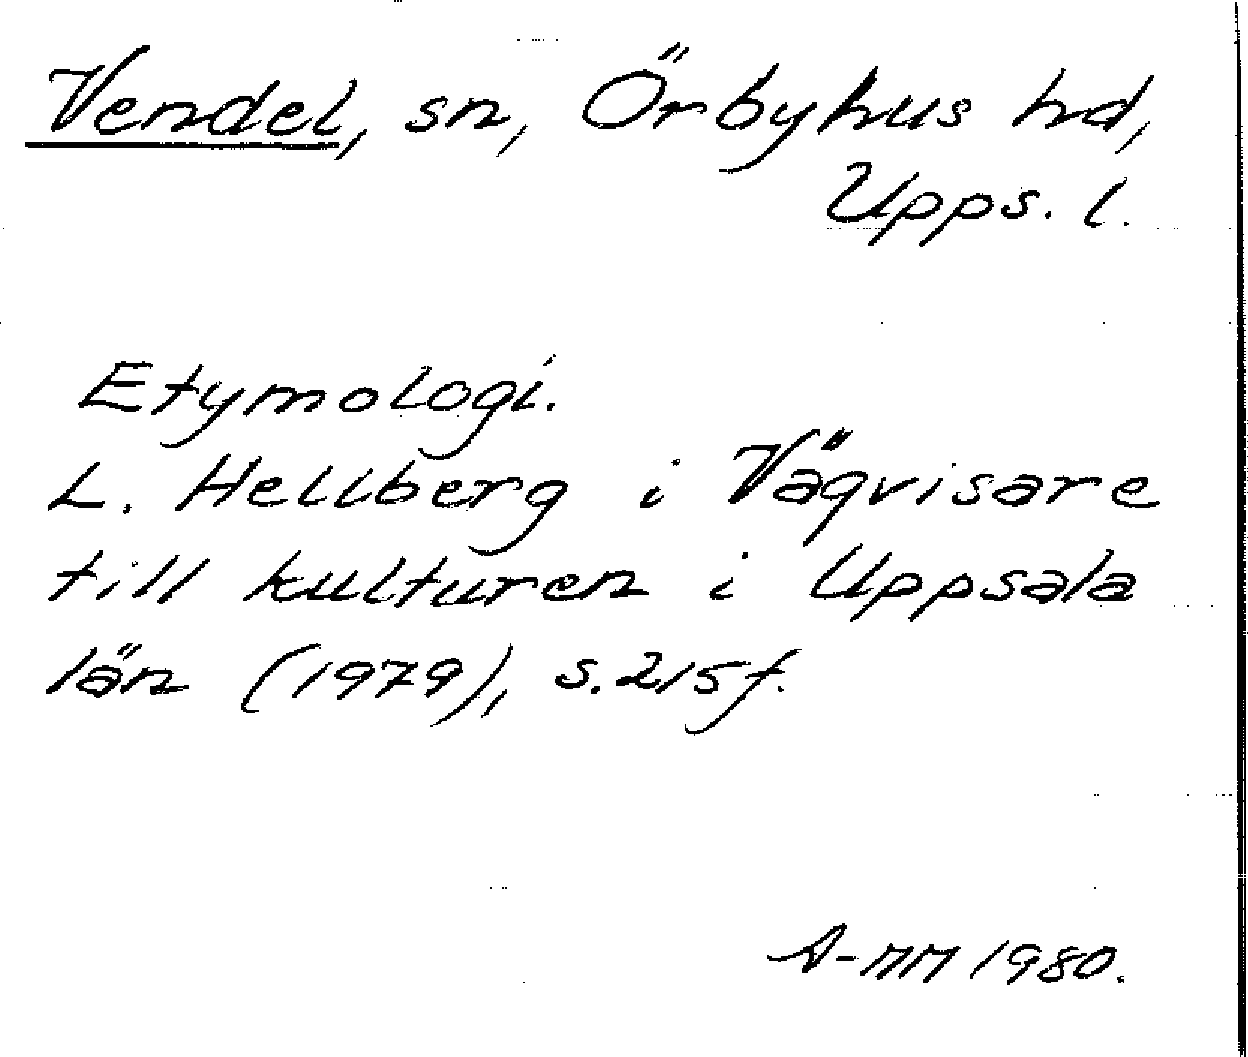 Vendel, sn, Örbyhus hd,
Upps. l.
Etymologi.
L. Hellberg i Vägvisare
till kulturen i Uppsala
län (1979), s. 215 f.
A-MM 1980.